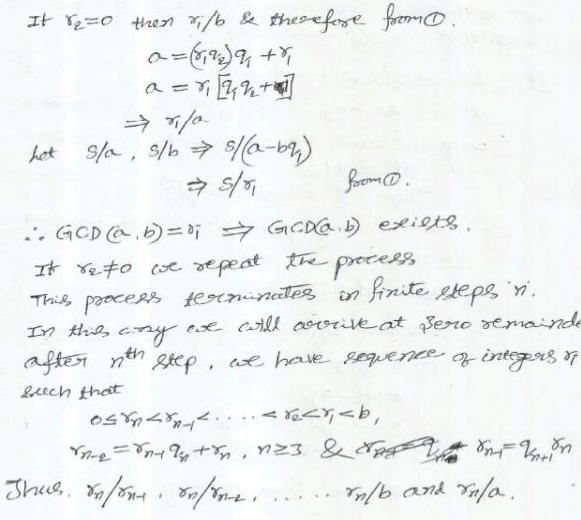 If r₂=0 then r₁/b & therefore from①.
a=(r₁q₂)q₁+r₁
a = r₁[q₁q₂+1]
⇒ r₁/a
Let S/a, S/b ⇒ S/(a-bq₁)
⇒ S/r₁ from①.
∴ GCD(a,b)=r₁ ⇒ GCD(a,b) exists.
If r₂≠0 we repeat the process
This process terminates in finite steps 'n'.
In this way we will arrive at zero remainde
after nᵗʰ step, we have sequence of integers rᵢ
such that
0≤rₙ<rₙ₋₁<....<r₂<r₁<b,
rₙ₋₂=rₙ₋₁qₙ+rₙ, n≥3 & rₙ₋₁=qₙ₊₁rₙ
Thus, rₙ/rₙ₋₁, rₙ/rₙ₋₂, ..... rₙ/b and rₙ/a.